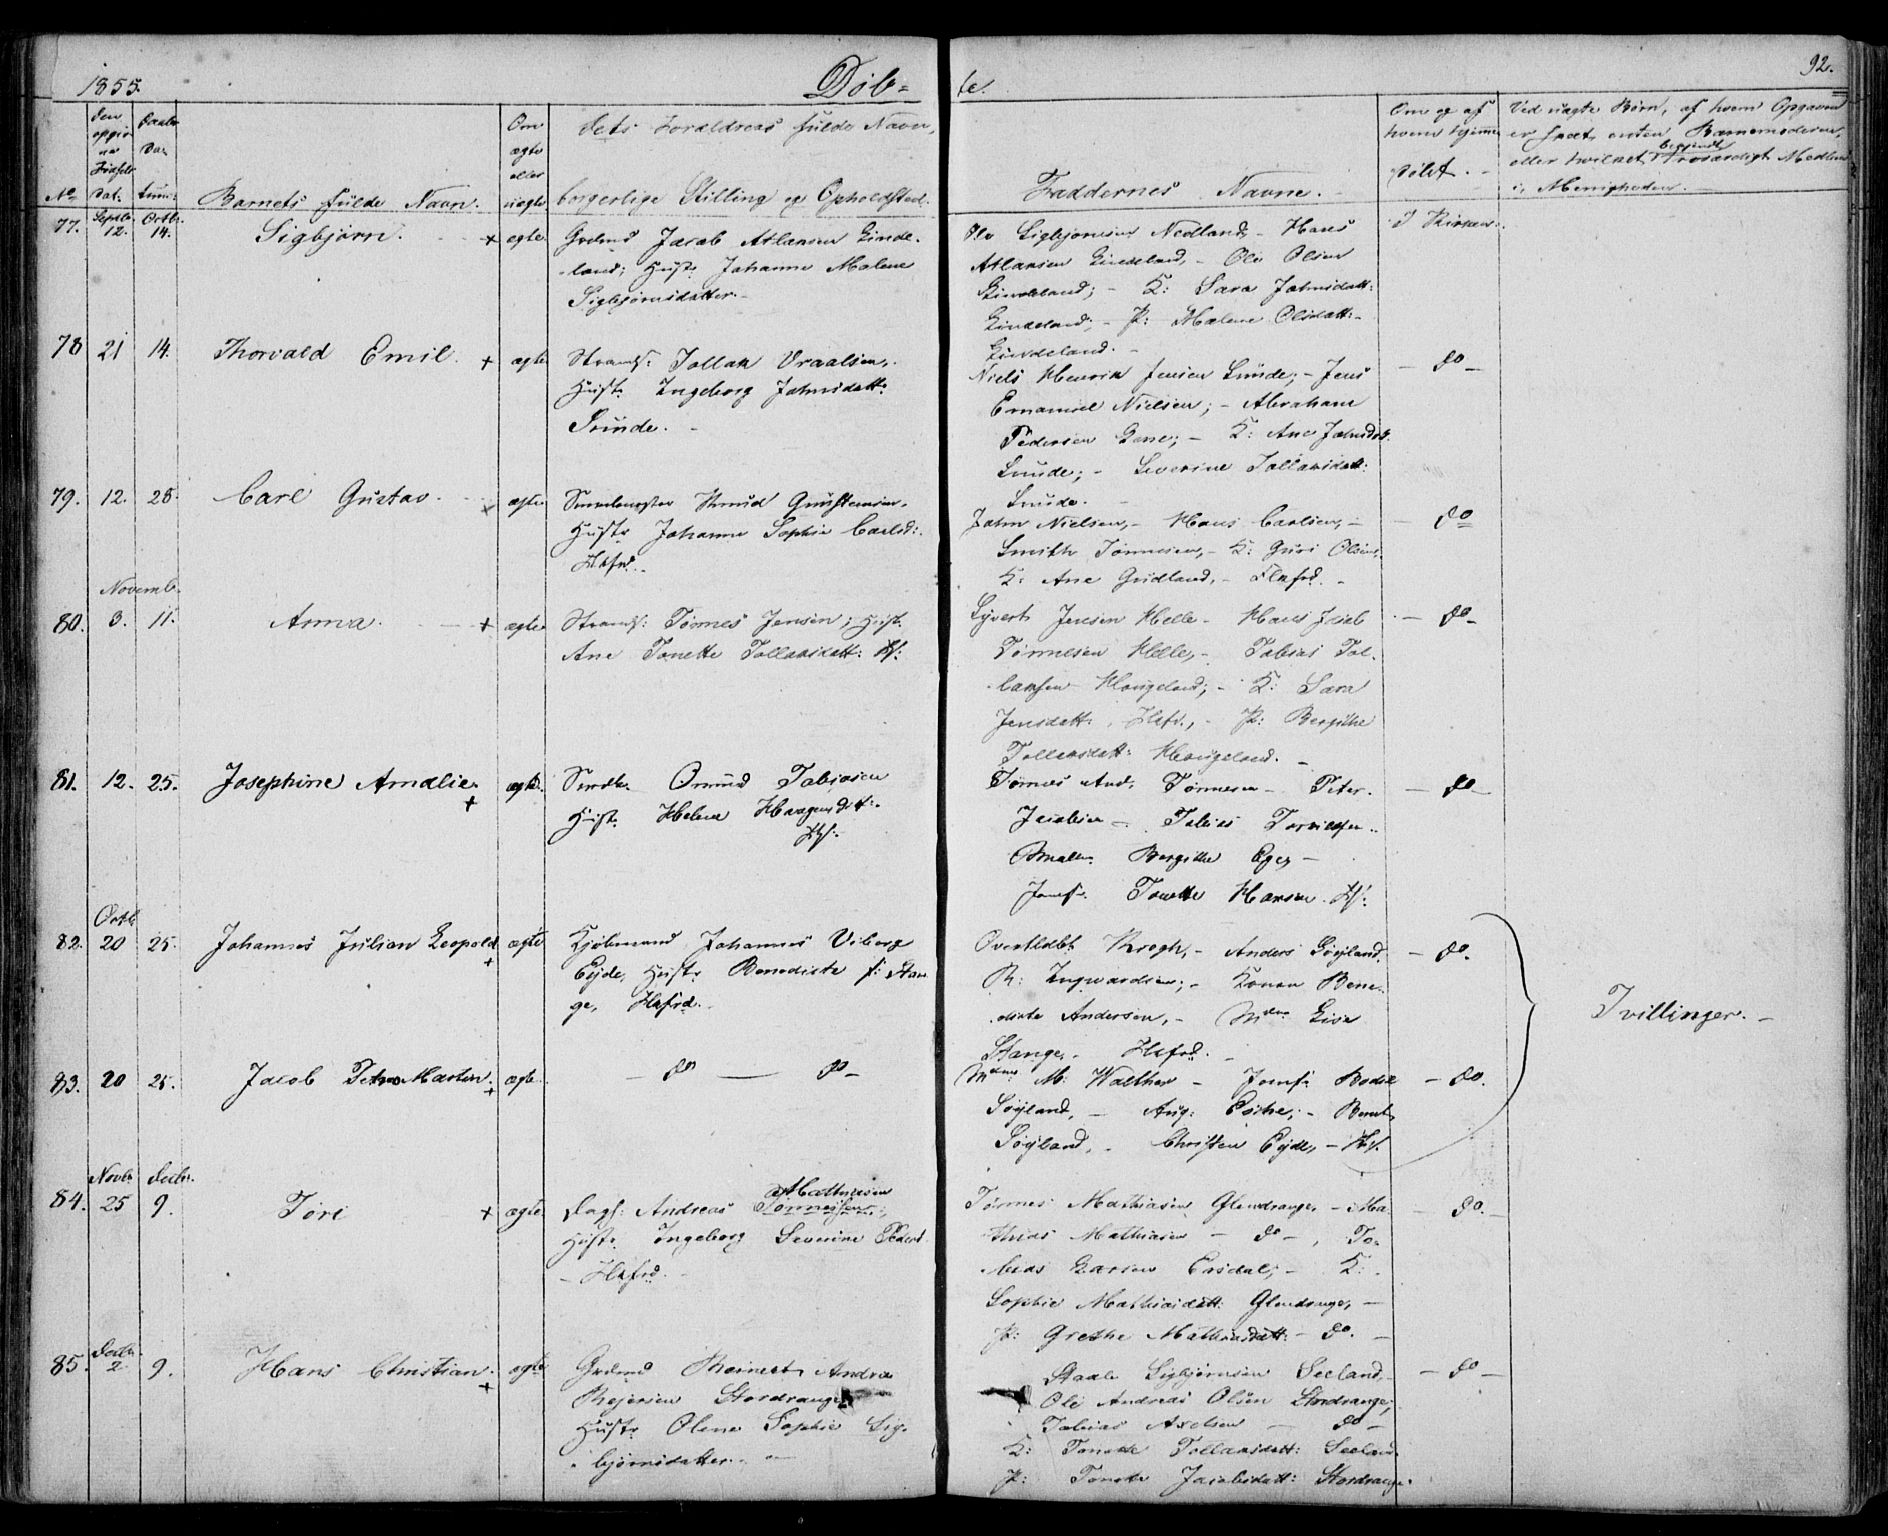 1855.
Døb-
te.
92.
Den opgivne Fødsels Dat:
Daabs Datum:
No
Barnets fulde Navn.
Om ægte eller uægte
Dets Forældres fulde Navn,
borgerlige Stilling og Opholdsted.
Faddernes Navne.
Om og af hvem hjemmedøbt.
Ved uægte Børn, af hvem Opgaven
er skeet, enten Barnemoderen,
eller hvilket bekjendt troværdigt Medlem
i Menigheden.
77. Septb. 12. Octb. 14. Sigbjørn. + ægte
Grdmd Jacob Atlaksen Linde-
land; Hustr: Johanne Malene
Sigbjørnsdatter.
Ole Sigbjørnsen Nedland, Hans
Atlaksen Lindeland, - Ole Olsen
Lindeland; - K: Sara Johnsdatt:
Lindeland; - P: Malene Olsdatt:
Lindeland.
I Kirken.
78 21 14. Thorvald Emil. + ægte
Strands: Tollak Vraalsen,
Hustr: Ingeborg Johnsdatt:
Sunde.
Niels Henrik Jensen Sunde; - Jens
Emanuel Nielsen; - Abraham
Pedersen Lone; - K: Ane Johnsdtt.
Sunde; - Severine Tollaksdatt:
Sunde.
- do -
79. 12. 28. Carl Gustav. + ægte
Knud Gunstensen,
Hustr Johanne Sophie Carlsd:
Flkfrd.
John Nielsen, - Hans Carlsen, -
Smith Tønnesen, - K: Guri Olsen,
K: Ane Gudland, - Flkfrd. -
- do
Novemb.
80. 3. 11. Anna. + ægte
Strands: Tønnes Jensen; Hustr.
Ane Tonette Tollaksdatt: Ff:
Sivert Jensen Helle - Hans Jacob
Tønnesen Helle, - Tobias Tol-
laksen Haugeland; - K: Sara
Jensdatt: Flkfr., - P: Bergithe
Tollaksdatt: Haugeland.
- do -
81. 12. 25. Josephine Amalie. + ægte
Omund Tobiasen
Hustr. Helene Haagensdtt:
Ff:
Tønnes And: Tønnesen - Peter
Jacobsen - Tobias Torkildsen
Bergithe Eger -
Jomfr. Tonette Hansen. Ff:
- do -
Octb
82. 20 25. Johannes Julian Leopold + ægte
Kjøbmand Johannes Viborg
Eyde, Hustr Benedicte f: Stan-
ge, Flkfrd.
Krogh, - Anders Søyland
R: Ingwardsen; - Konen Bene-
dicte Andersen, - Mdme Lise
Stange, - Flkfrd.
- do.
Tvillinger. -
83. 20 25. Jacob Petrus Martin. + ægte.
- do - do -
Mdme M: Walther - Jomfr: Bodil
Søyland, - Aug: Esche; - Bernt
Søyland, - Christen Eyde, - Ff.
- do.
Novb. Decbr.
84. 25 9. Tori + ægte.
Dags: Andreas Tønnessen Mathiasen
Hustr. Ingeborg Severine Peders
- Flkfrd.
Tønnes Mathiasen Glendrange, - Ma-
thias Mathiasen - do -, To-
bias Larsen Eersdal; - K:
Sophie Mathiasdatt: Glendrange, -
P: Grethe Mathiasdatt: - do. -
- do. -
Decbr.
85. 2 9. Hans Christian. + ægte
Grdmd Reinert Andreas
Rejersen Stordrange,
Hustr Olene Sophie Sig-
bjørnsdatter.
Staale Sigbjørnsen Seeland.
Ole Andreas Olsen Stordrange;
Tobias Axelsen - do -
K: Tonette Tollaksdatt: Seeland
P: Tonette Jacobsdatt: Stordrange.
- do -